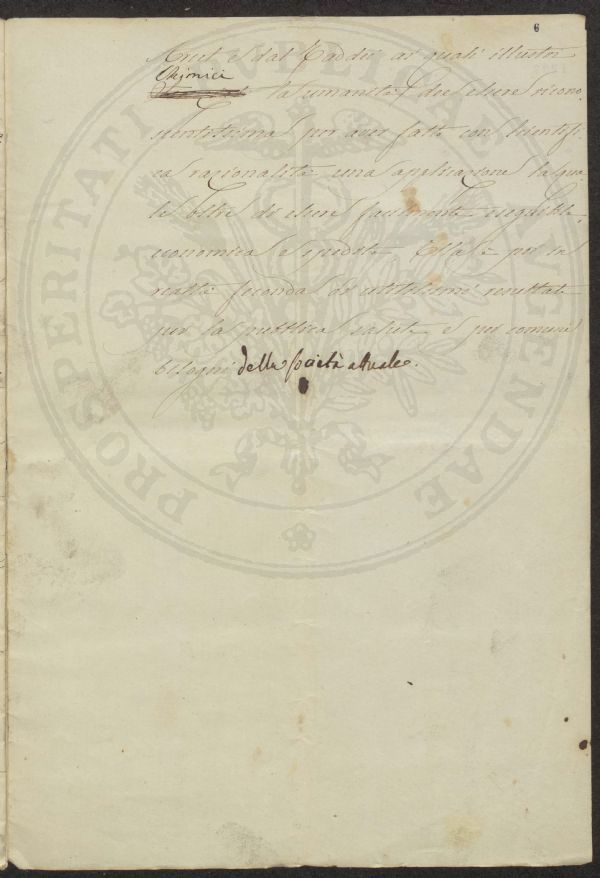 6
e dal Taddei, ai quali illustri
Chimici
la umanità dee essere ricono-
scentissima per aver fatto con scientifi-
ca razionalità una applicazione la qua
le oltre di essere facilmente eseguibile,
economica e spedita. Essa è per sa
realtà feconda di utilissimi resultati
per la pubblica salute e per comuni
bisogni della società attuale.
PROSPERITATI PUBLICAE AUGENDAE